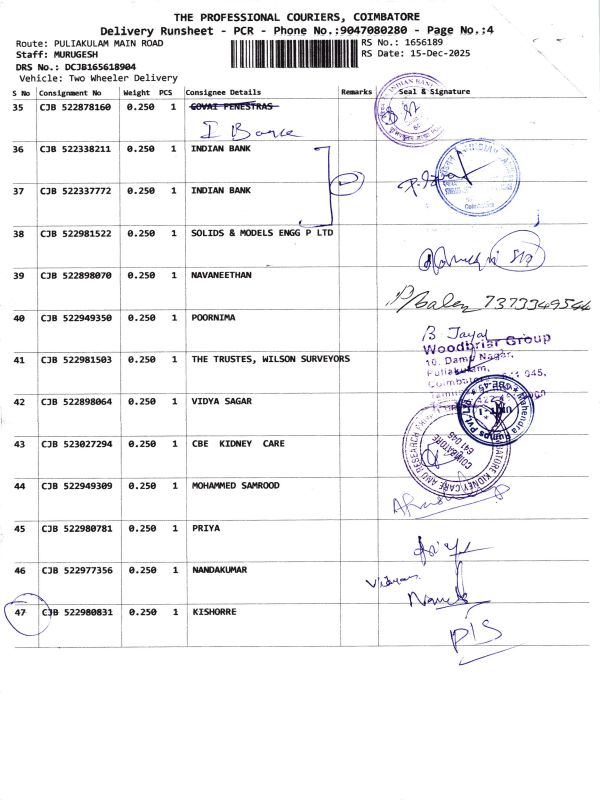 THE PROFESSIONAL COURIERS, COIMBATORE
Delivery Runsheet - PCR - Phone No.:9047080280 - Page No.:4
Route: PULIAKULAM MAIN ROAD RS No.: 1656189
Staff: MURUGESH RS Date: 15-Dec-2025
DRS No.: DCJB165618904
Vehicle: Two Wheeler Delivery
S No Consignment No Weight PCS Consignee Details Remarks Seal & Signature
35 CJB 522878160 0.250 1 GOVAI FENESTRAS
36 CJB 522338211 0.250 1 INDIAN BANK
37 CJB 522337772 0.250 1 INDIAN BANK
38 CJB 522981522 0.250 1 SOLIDS & MODELS ENGG P LTD
39 CJB 522898070 0.250 1 NAVANEETHAN
7373349544
40 CJB 522949350 0.250 1 POORNIMA
B Jayal
Woodbriar Group
10, Damu Nagar,
Puliakulam,
41 CJB 522981503 0.250 1 THE TRUSTES, WILSON SURVEYORS
42 CJB 522898064 0.250 1 VIDYA SAGAR
Mahendra Pumps Pvt. Ltd.
43 CJB 523027294 0.250 1 CBE KIDNEY CARE
COIMBATORE
641 045
44 CJB 522949309 0.250 1 MOHAMMED SAMROOD
45 CJB 522980781 0.250 1 PRIYA
46 CJB 522977356 0.250 1 NANDAKUMAR
47 CJB 522980831 0.250 1 KISHORRE